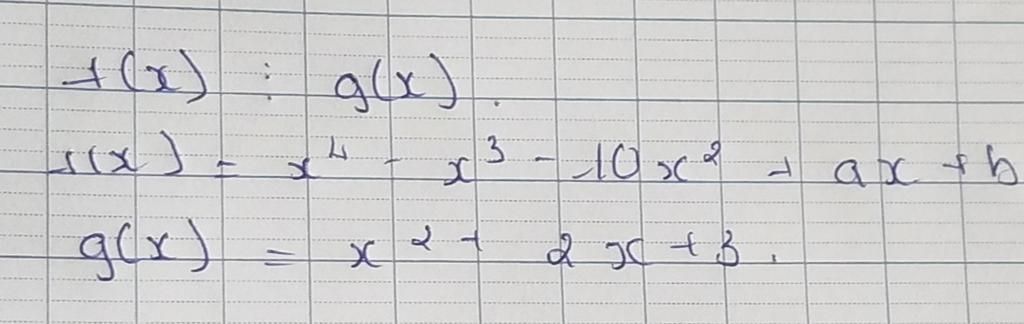 f(x) ⋮ g(x).
f(x) = x⁴ - x³ - 10x² + ax + b
g(x) = x² + 2x + 3.